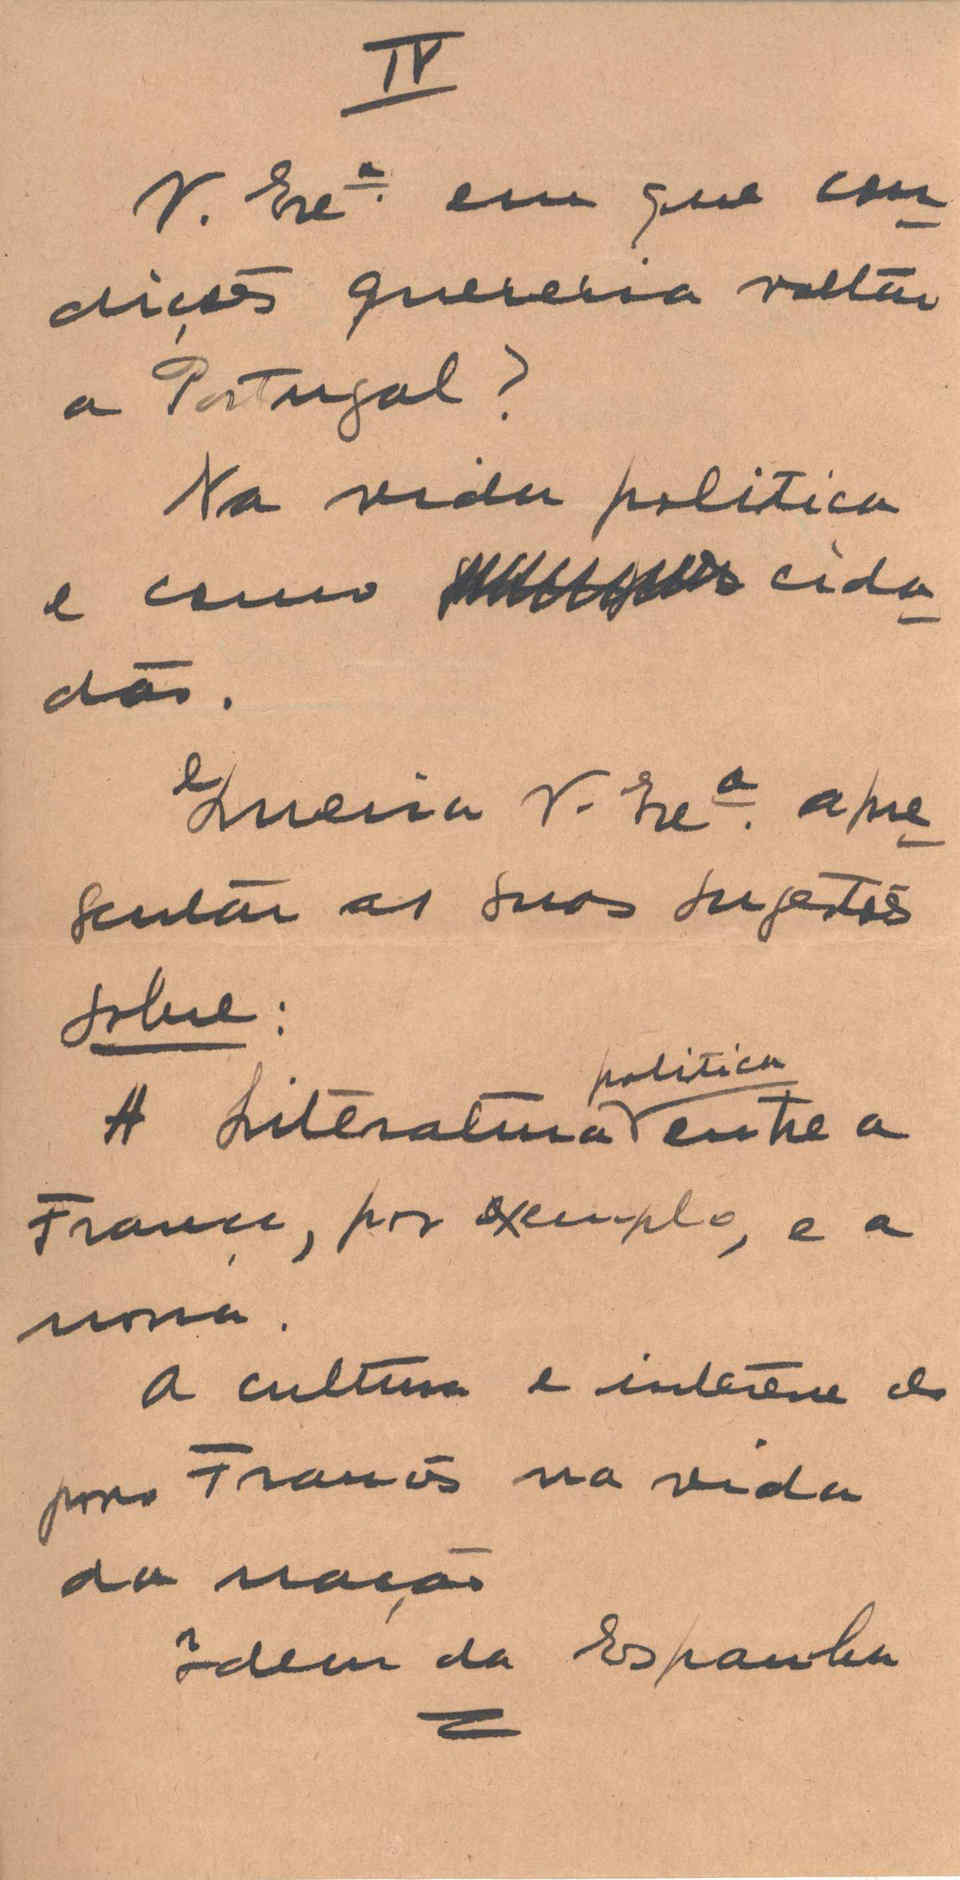 IV
V. Exe.ª em que con-
dições quereria voltar
a Portugal?
Na vida politica
e como cida-
dão.
Queria V. Exe.ª apre-
sentar as suas sugestões
sobre:
A Literatura politica entre a
França, por exemplo, e a
nossa.
A cultura e interesse do
povo Francês na vida
da nação
Idem da Espanha